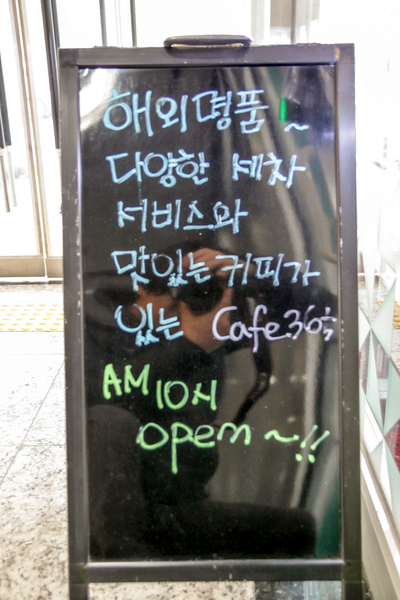 해외명품 ~
다양한 세차
서비스와
맛있는 커피가
있는 Cafe36숙
AM 10시
open ~!!